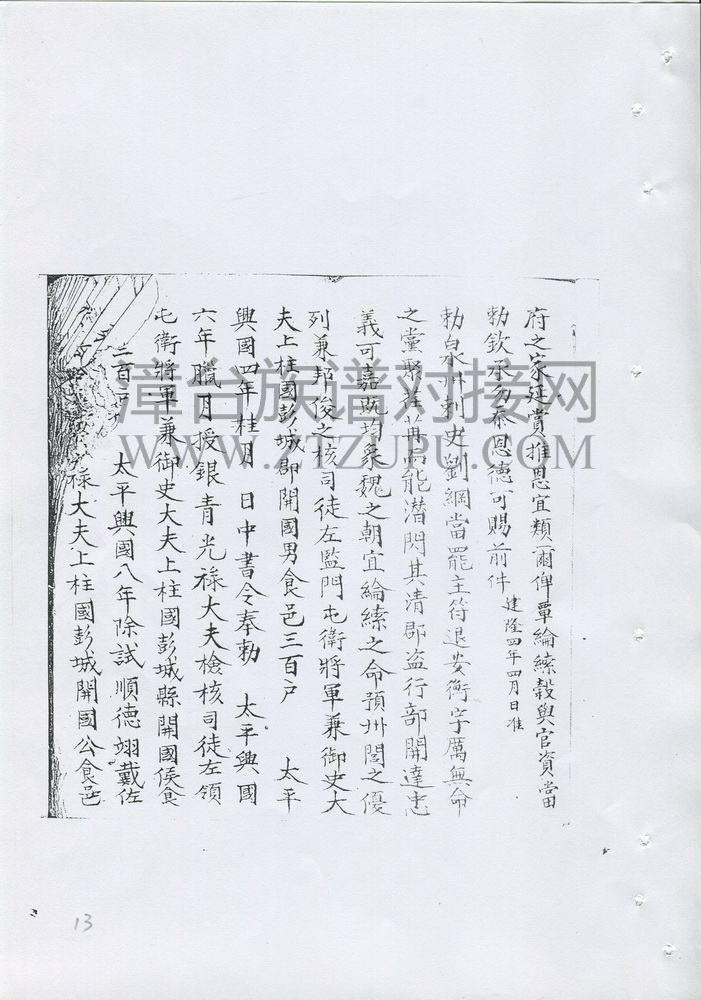 府之家延賞推恩宜類爾俾覃綸綍穀與官資當
勅欽承勿忝恩德可賜前件 建隆四年四月日准
勅泉州刺史劉綱當罷主符退安衡字厲無命
之黨聚萑苻而能潜閃其清郡盗行部開達忠
義可嘉既均象魏之朝宜綸綍之命預州閭之優
列兼邦俊之核司徒左監門屯衛將軍兼御史大
夫上柱國彭城郡開國男食邑三百户 太平
興國四年桂月 日中書令奉勅 太平興國
六年臘月授銀青光祿大夫檢核司徒左領
屯衛將軍兼御史大夫上柱國彭城縣開國侯食
三百户 太平興國八年除試順德翊戴佐
祿大夫上柱國彭城開國公食邑
漳台族谱对接网
WWW.ZTZUPU.COM
13